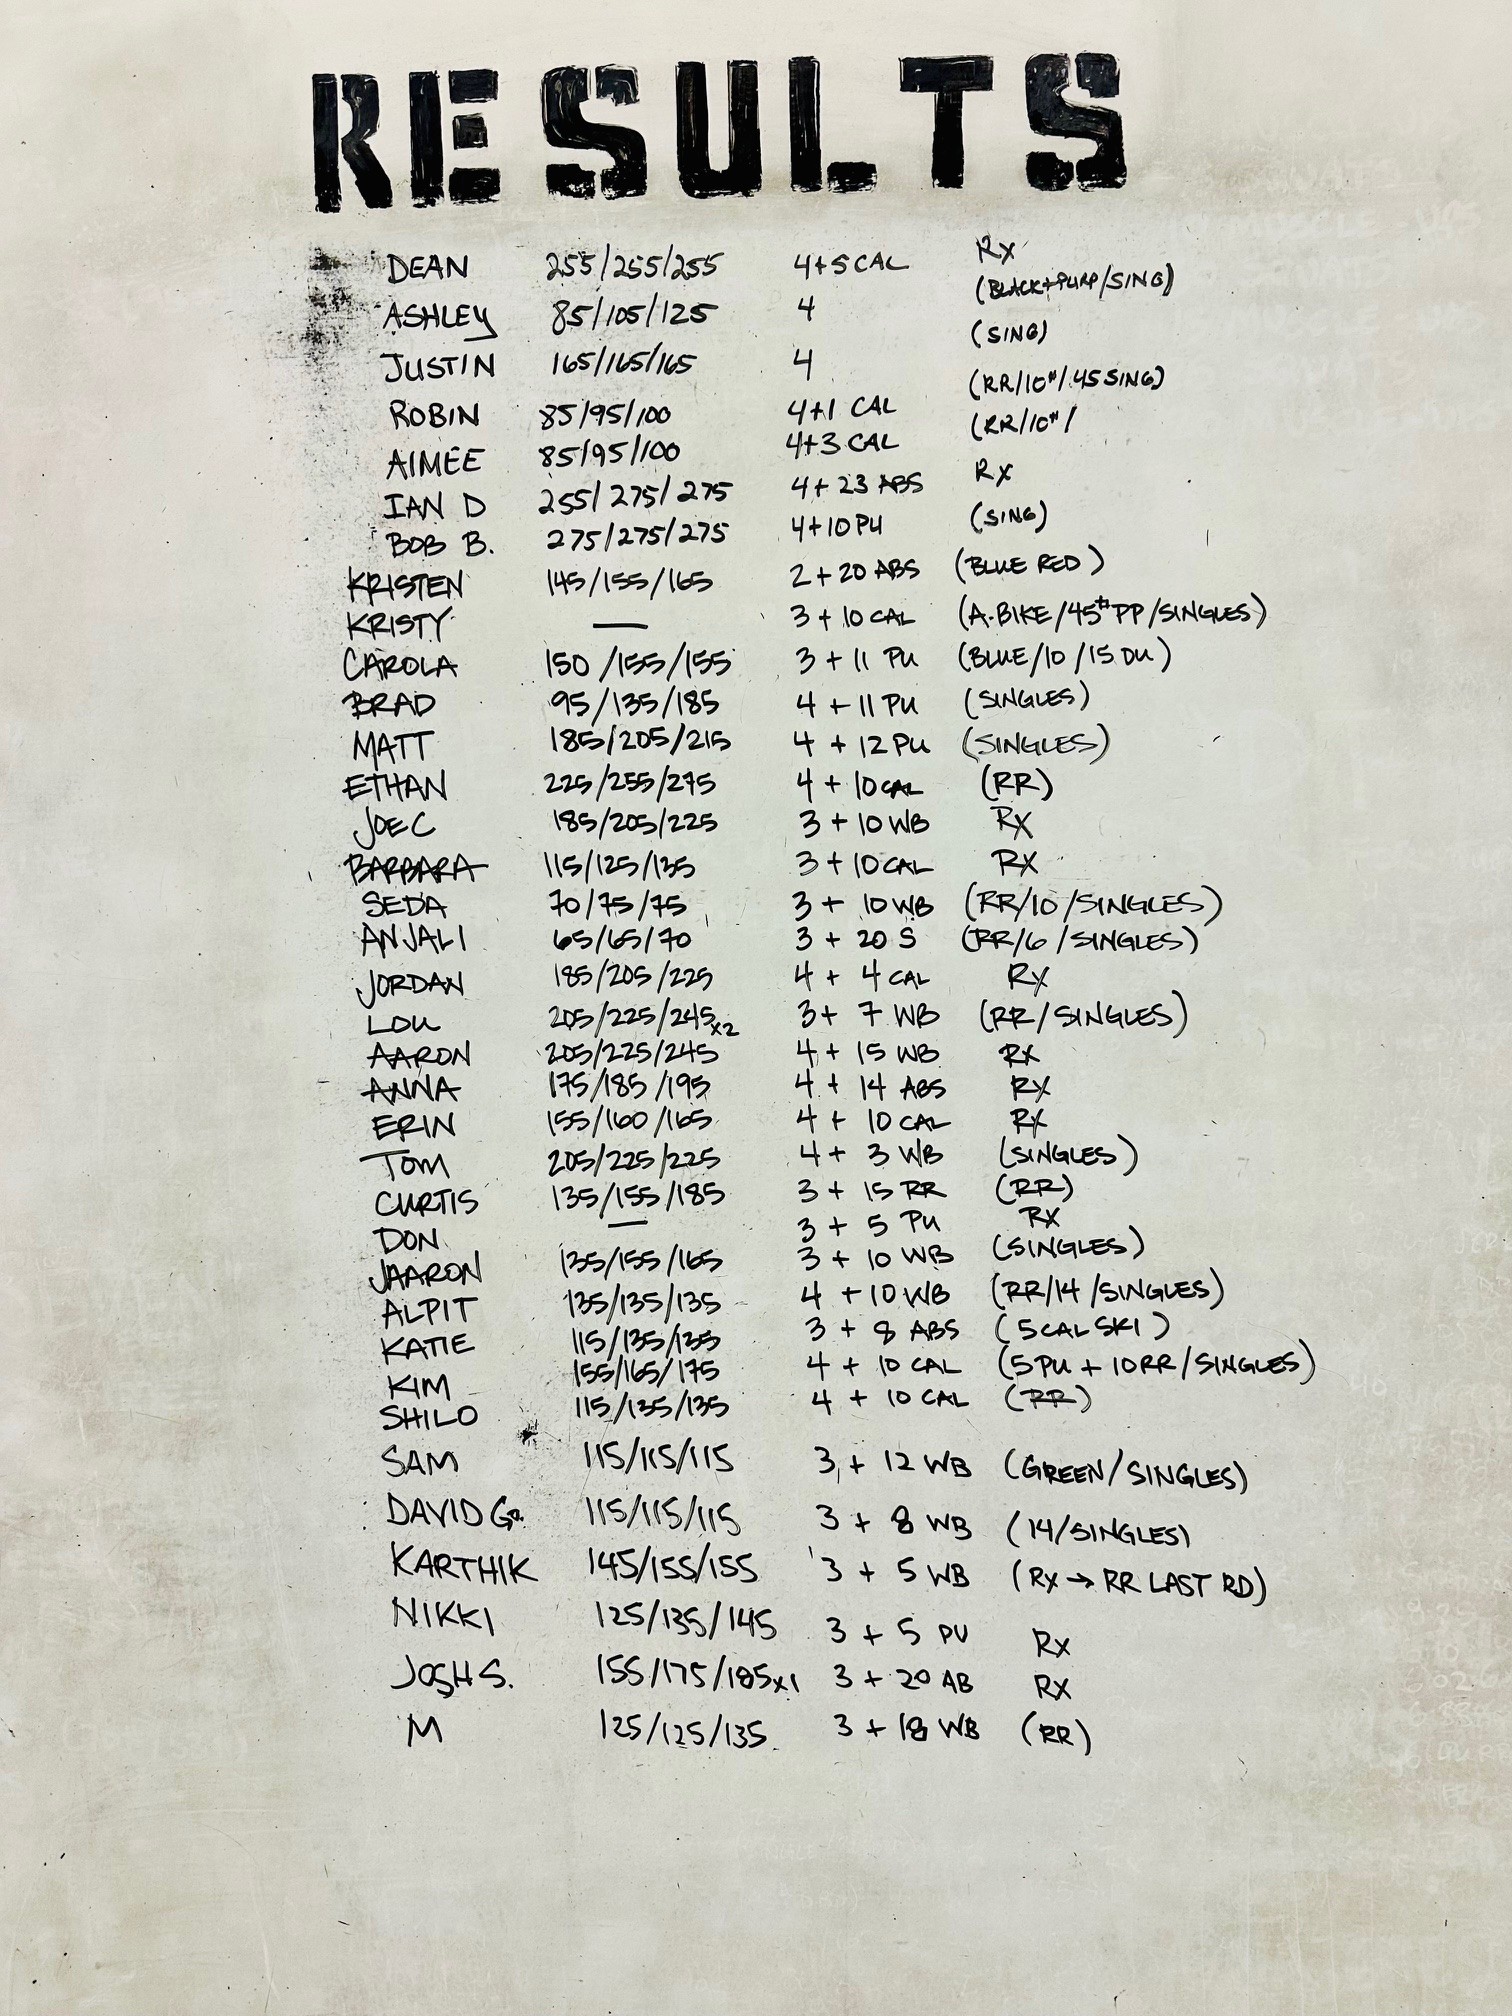 RESULTS
DEAN 255/255/255 4+5 CAL Rx
ASHLEY 85/105/125 4 (BLACK+PURP/SING)
JUSTIN 165/165/165 4 (SING)
ROBIN 85/95/100 4+1 CAL (RR/10#/.45 SING)
AIMEE 85/95/100 4+3 CAL (RR/10#/
IAN D 255/275/275 4+23 ABS Rx
BOB B. 275/275/275 4+10 PU (SING)
KRISTEN 145/155/165 2+20 ABS (BLUE RED)
KRISTY — 3+10 CAL (A.BIKE/45# PP/SINGLES)
CAROLA 150/155/155 3+11 PU (BLUE/10/15 DU)
BRAD 95/135/185 4+11 PU (SINGLES)
MATT 185/205/215 4+12 PU (SINGLES)
ETHAN 225/255/275 4+10 CAL (RR)
JOE C 185/205/225 3+10 WB RX
BARBARA 115/125/135 3+10 CAL RX
SEDA 70/75/75 3+10 WB (RR/10/SINGLES)
ANJALI 65/65/70 3+20 S (RR/6/SINGLES)
JORDAN 185/205/225 4+4 CAL RX
LOU 205/225/245x2 3+7 WB (RR/SINGLES)
AARON 205/225/245 4+15 WB RX
ANNA 175/185/195 4+14 ABS RX
ERIN 155/160/165 4+10 CAL RX
TOM 205/225/225 4+3 WB (SINGLES)
CURTIS 135/155/185 3+15 RR (RR)
DON — 3+5 PU RX
JAARON 135/155/165 3+10 WB (SINGLES)
ALPIT 135/135/135 4+10 WB (RR/14/SINGLES)
KATIE 115/135/135 3+8 ABS (5 CAL SKI)
KIM 155/165/175 4+10 CAL (5 PU+10RR/SINGLES)
SHILO 115/135/135 4+10 CAL (RR)
SAM 115/115/115 3+12 WB (GREEN/SINGLES)
DAVID G. 115/115/115 3+8 WB (14/SINGLES)
KARTHIK 145/155/155 3+5 WB (Rx→RR LAST RD)
NIKKI 125/135/145 3+5 PU Rx
JOSH S. 155/175/185x1 3+20 AB Rx
M 125/125/135 3+18 WB (RR)